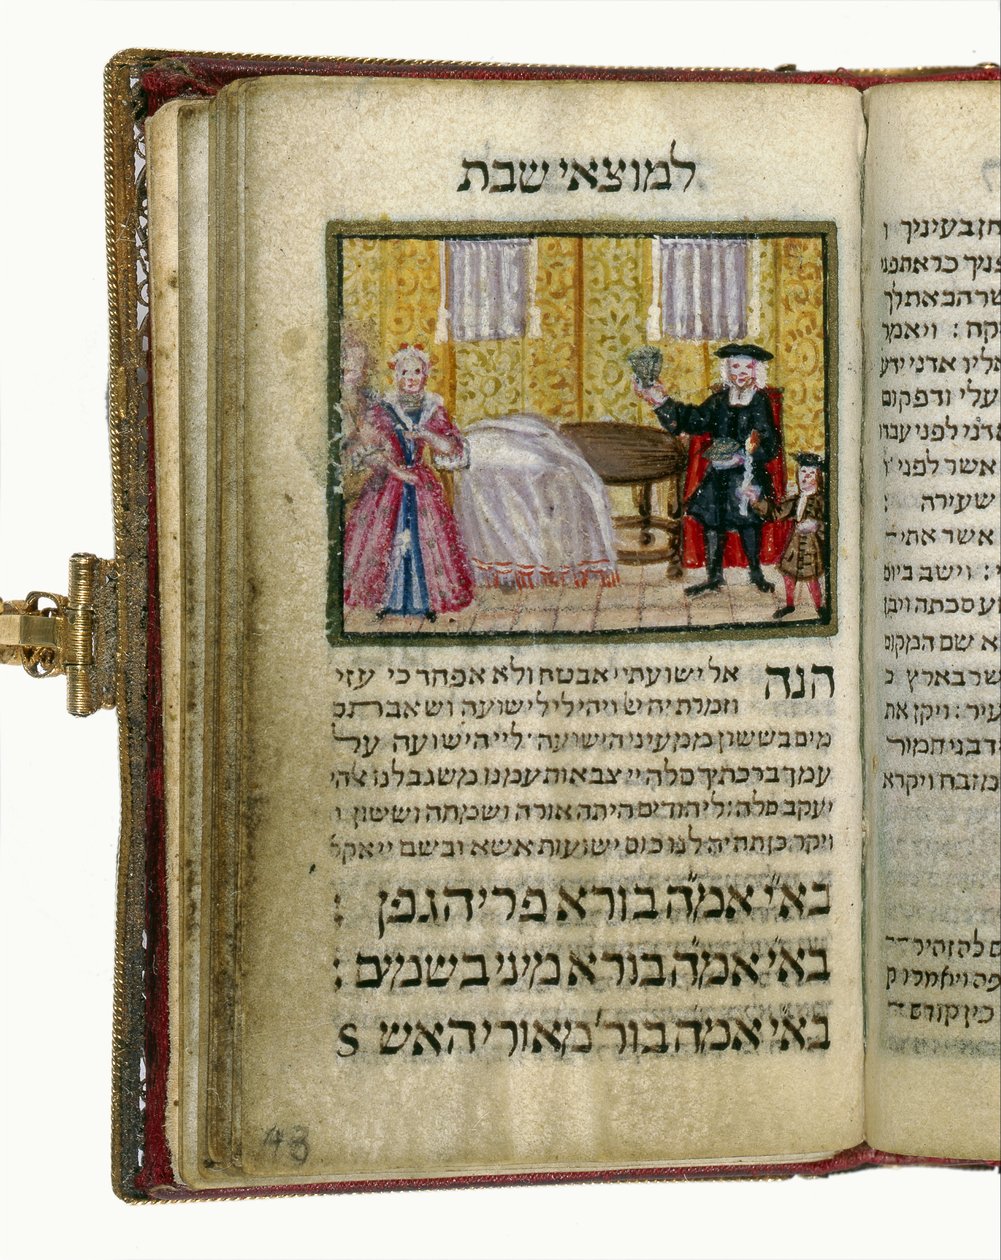 למוצאי שבת
הנה אל ישועתי אבטח ולא אפחד כי עזי
וזמרת יה יי ויהי לי לישועה ושאבתם
מים בששון ממעיני הישועה׃ ליי הישועה על
עמך ברכתיך סלה יי צבאות עמנו משגב לנו אלהי
יעקב סלה׃ ליהודים היתה אורה ושמחה וששון ו
ויקר כן תהיה לנו כוס ישועות אשא ובשם יי אקר
בא״י אמ״ה בורא פרי הגפן :
בא״י אמ״ה בורא מיני בשמים :
בא״י אמ״ה בור׳ מאורי האש S
43
חן בעיניך ו
פניך כראת פני
אשר הבאת לך
: ויאמר
אליו אדני ידע
עלי ודפקום
אדני לפני עבדו
אשר לפני
שעירה :
אשר אתי
: וישב ביום
סכתה ויבן
א שם המקום
אשר בארץ כ
עיר : ויקן את
בני חמור
מזבח ויקרא
להזהיר